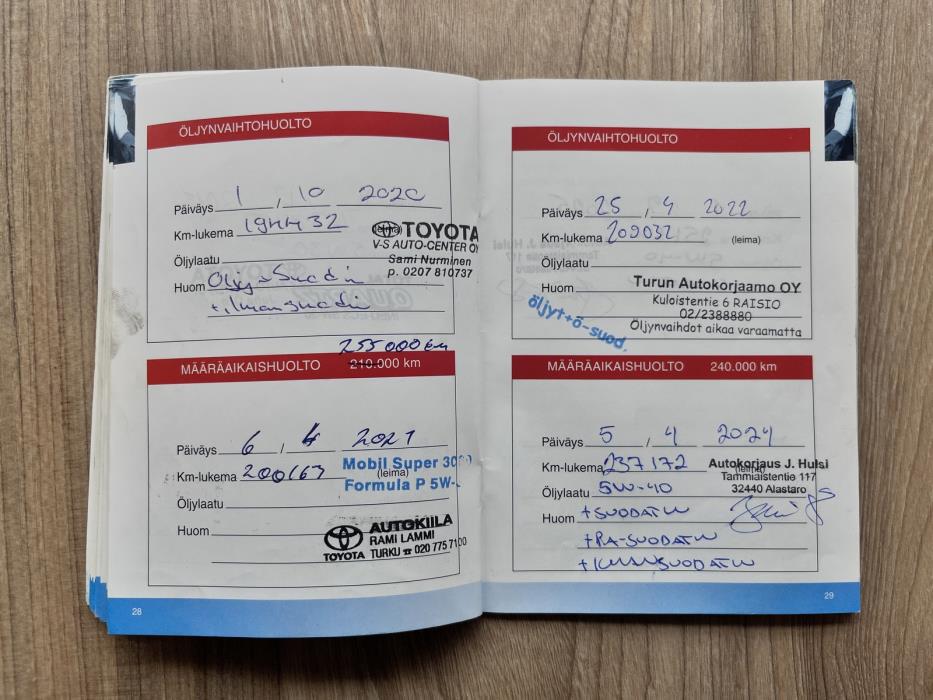 ÖLJYNVAIHTOHUOLTO
Päiväys 1 / 10 2020
Km-lukema 194432 (leima)
TOYOTA
V-S AUTO-CENTER OY
Sami Nurminen
p. 0207 810737
Öljylaatu
Huom Öljy+Suodin
+ilmansuodin
255000 km
MÄÄRÄAIKAISHUOLTO 210.000 km
Päiväys 6 / 4 2021
Km-lukema 200163 (leima)
Mobil Super 3000
Formula P 5W-
Öljylaatu
Huom
TOYOTA
AUTOKIILA
RAMI LAMMI
TURKU ☎ 020 775 7100
28
ÖLJYNVAIHTOHUOLTO
Päiväys 25 / 4 2022
Km-lukema 209032 (leima)
Öljylaatu
Huom
öljyt+ö-suod.
Turun Autokorjaamo OY
Kuloistentie 6 RAISIO
02/2388880
Öljynvaihdot aikaa varaamatta
MÄÄRÄAIKAISHUOLTO 240.000 km
Päiväys 5 / 4 2024
Km-lukema 237172 (leima)
Autokorjaus J. Hulsi
Tammiaistentie 117
32440 Alastaro
Öljylaatu 5W-40
Huom +SUODATIN
+RA-SUODATIN
+ILMANSUODATIN
29